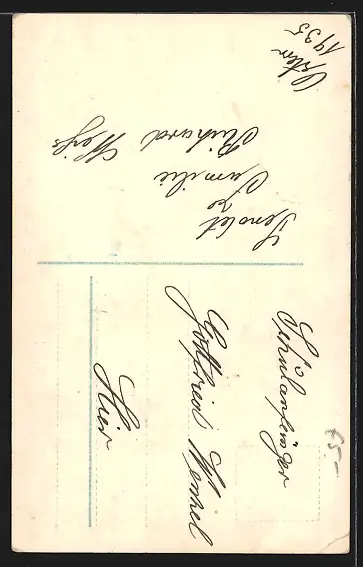 Ostern
1935
Sendet
Familie
Richard Weiß
Schulanfänger
Gottfried Wenzel
Hier
5.-